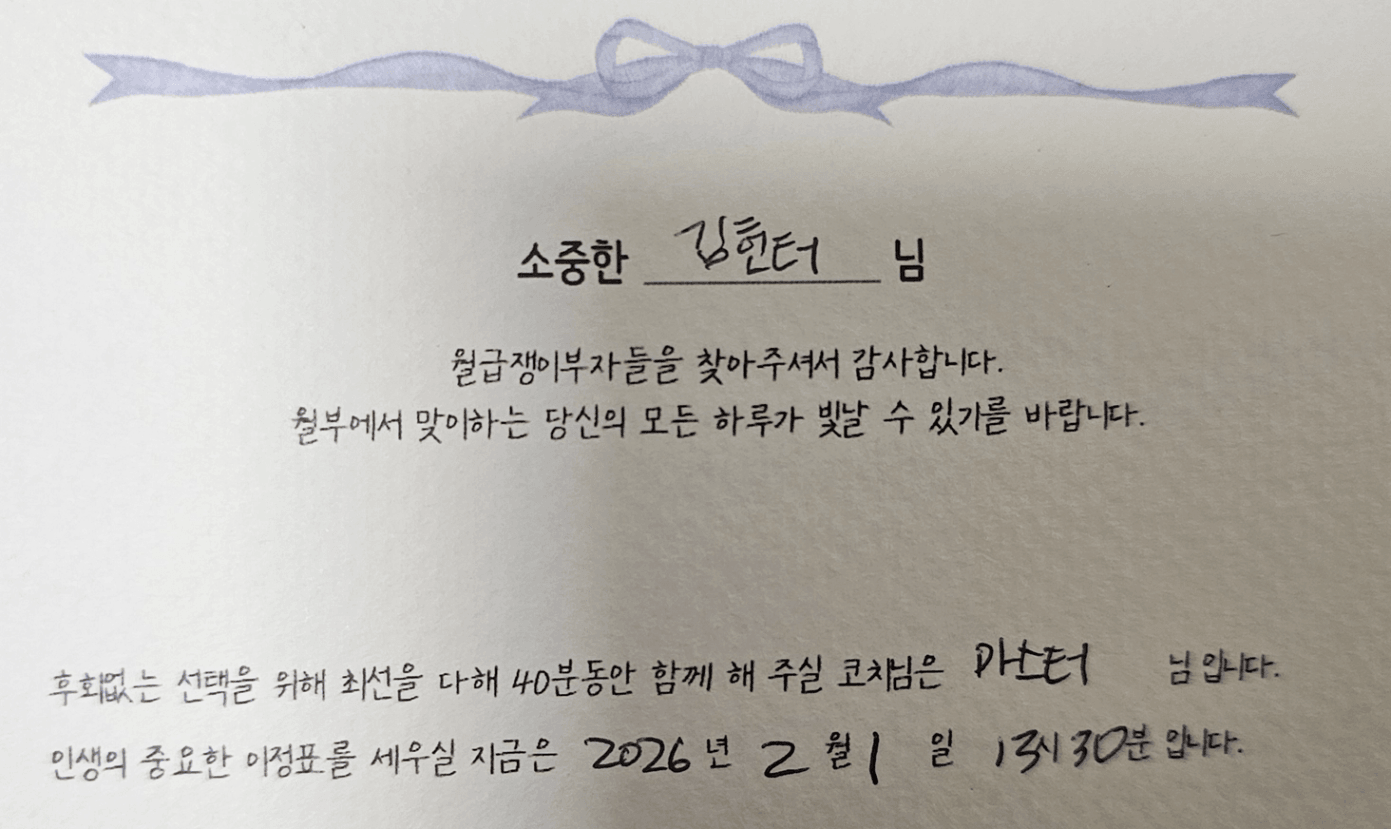 소중한 김헌터 님
월급쟁이부자들을 찾아주셔서 감사합니다.
월부에서 맞이하는 당신의 모든 하루가 빛날 수 있기를 바랍니다.
후회없는 선택을 위해 최선을 다해 40분동안 함께 해 주실 코치님은 마스터 님 입니다.
인생의 중요한 이정표를 세우실 지금은 2026 년 2 월 1 일 13시 30분 입니다.